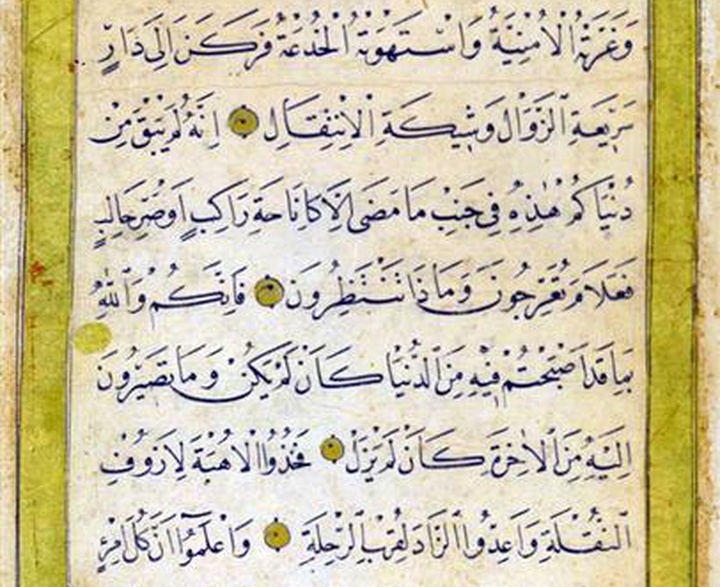 وَغَرَّتْهُ الْاُمْنِيَّةُ وَاسْتَهْوَتْهُ الْخُدْعَةُ فَرَكَنَ اِلَى دَارٍ
سَرِيعَةِ الزَّوَالِ وَشِيكَةِ الْاِنْتِقَالِ اِنَّهُ لَمْ يَبْقَ مِنْ
دُنْيَاكُمْ هٰذِهِ فِى جَنْبِ مَا مَضَى اِلَّا كَاِنَاخَةِ رَاكِبٍ اَوْ صَرِّ حَالِبٍ
فَعَلَامَ تُعَرِّجُونَ وَمَاذَا تَنْتَظِرُونَ فَاِنَّكُمْ وَاللّٰهِ
بِمَا قَدْ اَصْبَحْتُمْ فِيهِ مِنَ الدُّنْيَا كَاَنْ لَمْ يَكُنْ وَمَا تَصِيرُونَ
اِلَيْهِ مِنَ الْاٰخِرَةِ كَاَنْ لَمْ يَزَلْ فَخُذُوا الْاُهْبَةَ لِاُزُوفِ
النُّقْلَةِ وَاَعِدُّوا الزَّادَ لِقُرْبِ الرِّحْلَةِ وَاعْلَمُوا اَنَّ كُلَّ امْرِئٍ